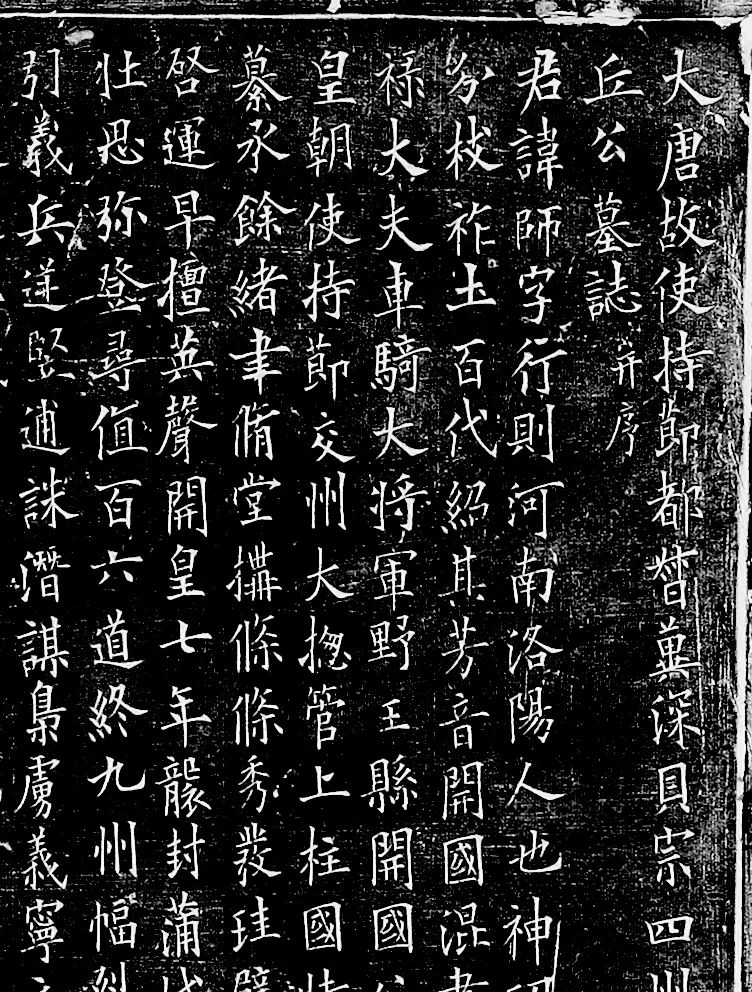 大唐故使持節都督冀深貝宗四州
丘公墓誌并序
君諱師字行則河南洛陽人也神
分枝祚土百代紹其芳音開國混
祿大夫車騎大將軍野王縣開國公
皇朝使持節交州大揔管上柱國
纂承餘緒聿脩堂構條條秀發珪璧
啓運早擅英聲開皇七年襲封蒲
壯思弥登尋值百六道終九州幅裂
引義兵逆豎逋誅潛謀梟虜義寧